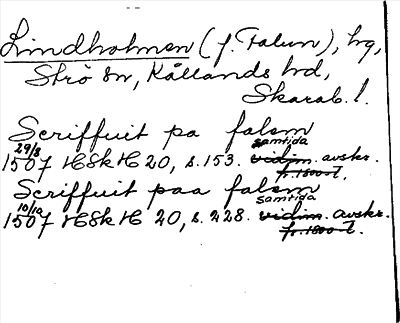 Lindholmen (f. Falun), hg,
Strö sn, Kållands hd,
Skarab. l.
Scriffuit pa falom
29/8 samtida
1507 HSkH 20, s. 153. vidim. avskr.
fr. 1800-t.
Scriffuit paa falom
10/10 samtida
1507 HSkH 20, s. 228. vidim. avskr.
fr. 1800-t.